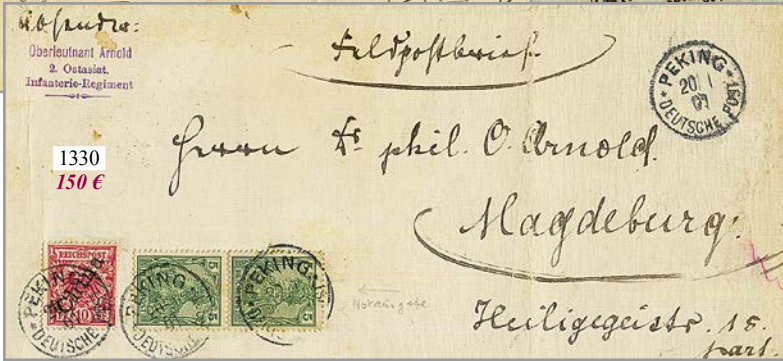 Absender:
Oberleutnant Arnold
2. Ostasiat.
Infanterie-Regiment
Feldpostbrief
PEKING
20/1
01
DEUTSCHE POST
1330
150 €
Herrn Dr phil. O. Arnold.
Magdeburg.
Heiligegeiststr. 15.
part.
REICHSPOST
China
10
PEKING
DEUTSCHE POST
5
PEKING
DEUTSCHE POST
5
PEKING
Notausgabe